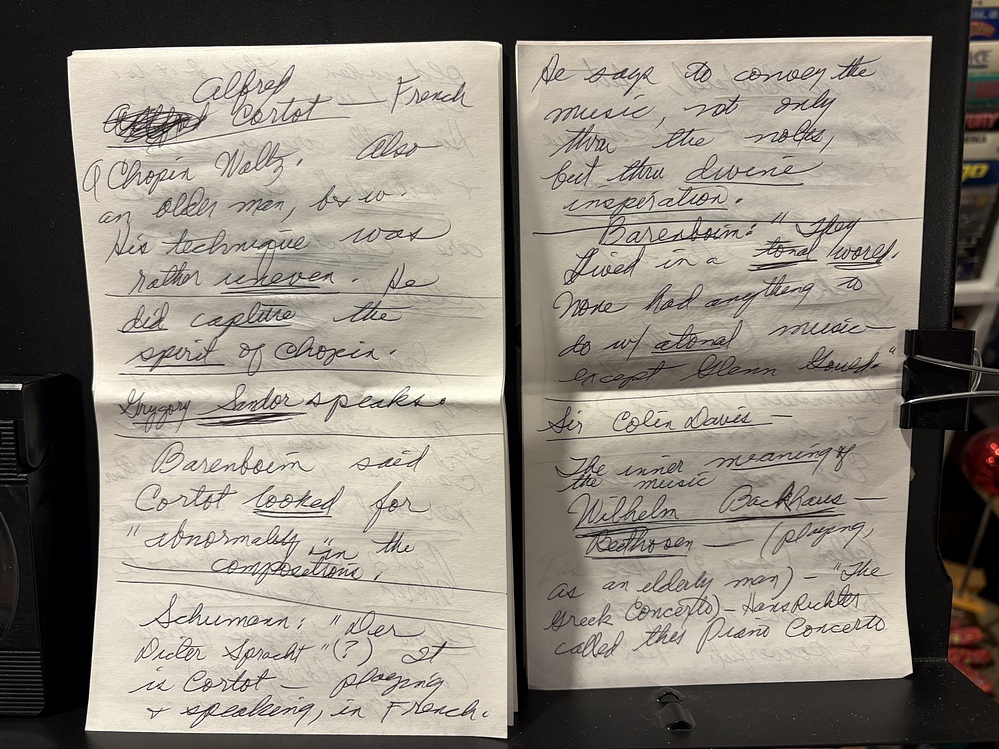 Alfred
Cortot — French
A Chopin Waltz. Also
an older man, b & w.
His technique was
rather uneven. He
did capture the
spirit of Chopin.
Grygory Sandor speaks.
Barenboim said
Cortot looked for
"abnormality" in the
compositions.
Schumann: "Der
Dicter Spracht "(?) It
is Cortot — playing
& speaking, in French.
He says to convey the
music, not only
thru the notes,
but thru divine
insperation.
Barenboim: "They
Lived in a tonal world.
None had anything to
do w/ atonal music
except Glenn Gould."
Sir Colin Davis —
The inner meaning of
the music
Wilhelm Backhaus —
Beethoven — (playing,
as an elderly man) — "The
Greek Concerto) — Hans Richter
called this Piano Concerto